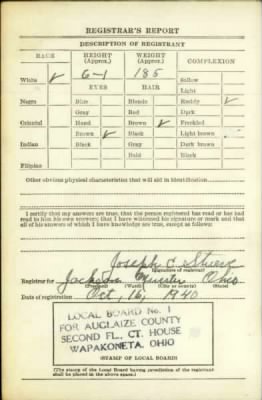 REGISTRAR'S REPORT
DESCRIPTION OF REGISTRANT
RACE HEIGHT (Approx.) WEIGHT (Approx.) COMPLEXION
White ✓ 6-1 185 Sallow
EYES HAIR Light
Negro Blue Blonde Ruddy ✓
Gray Red Dark
Oriental Hazel Brown ✓ Freckled
Brown ✓ Black Light brown
Indian Black Gray Dark brown
Bald Black
Filipino
Other obvious physical characteristics that will aid in identification
I certify that my answers are true; that the person registered has read or has had
read to him his own answers; that I have witnessed his signature or mark and that
all of his answers of which I have knowledge are true, except as follows:
Joseph C.
(Signature of registrar)
Registrar for Ohio
(Precinct) (Ward) (City or county) (State)
Date of registration Oct, 16, 1940
LOCAL BOARD No. 1
FOR AUGLAIZE COUNTY
SECOND FL., CT. HOUSE
WAPAKONETA, OHIO
(STAMP OF LOCAL BOARD)
(The stamp of the Local Board having jurisdiction of the registrant
shall be placed in the above space.)